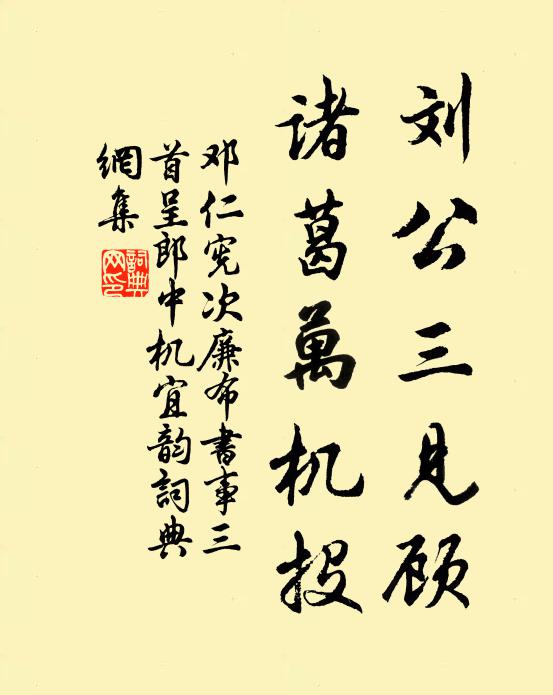 刘公三见顾
诸葛萬机投
邓仁宪次廉布書事三
首呈郎中机宜韵詞典
網集
詞典
网印